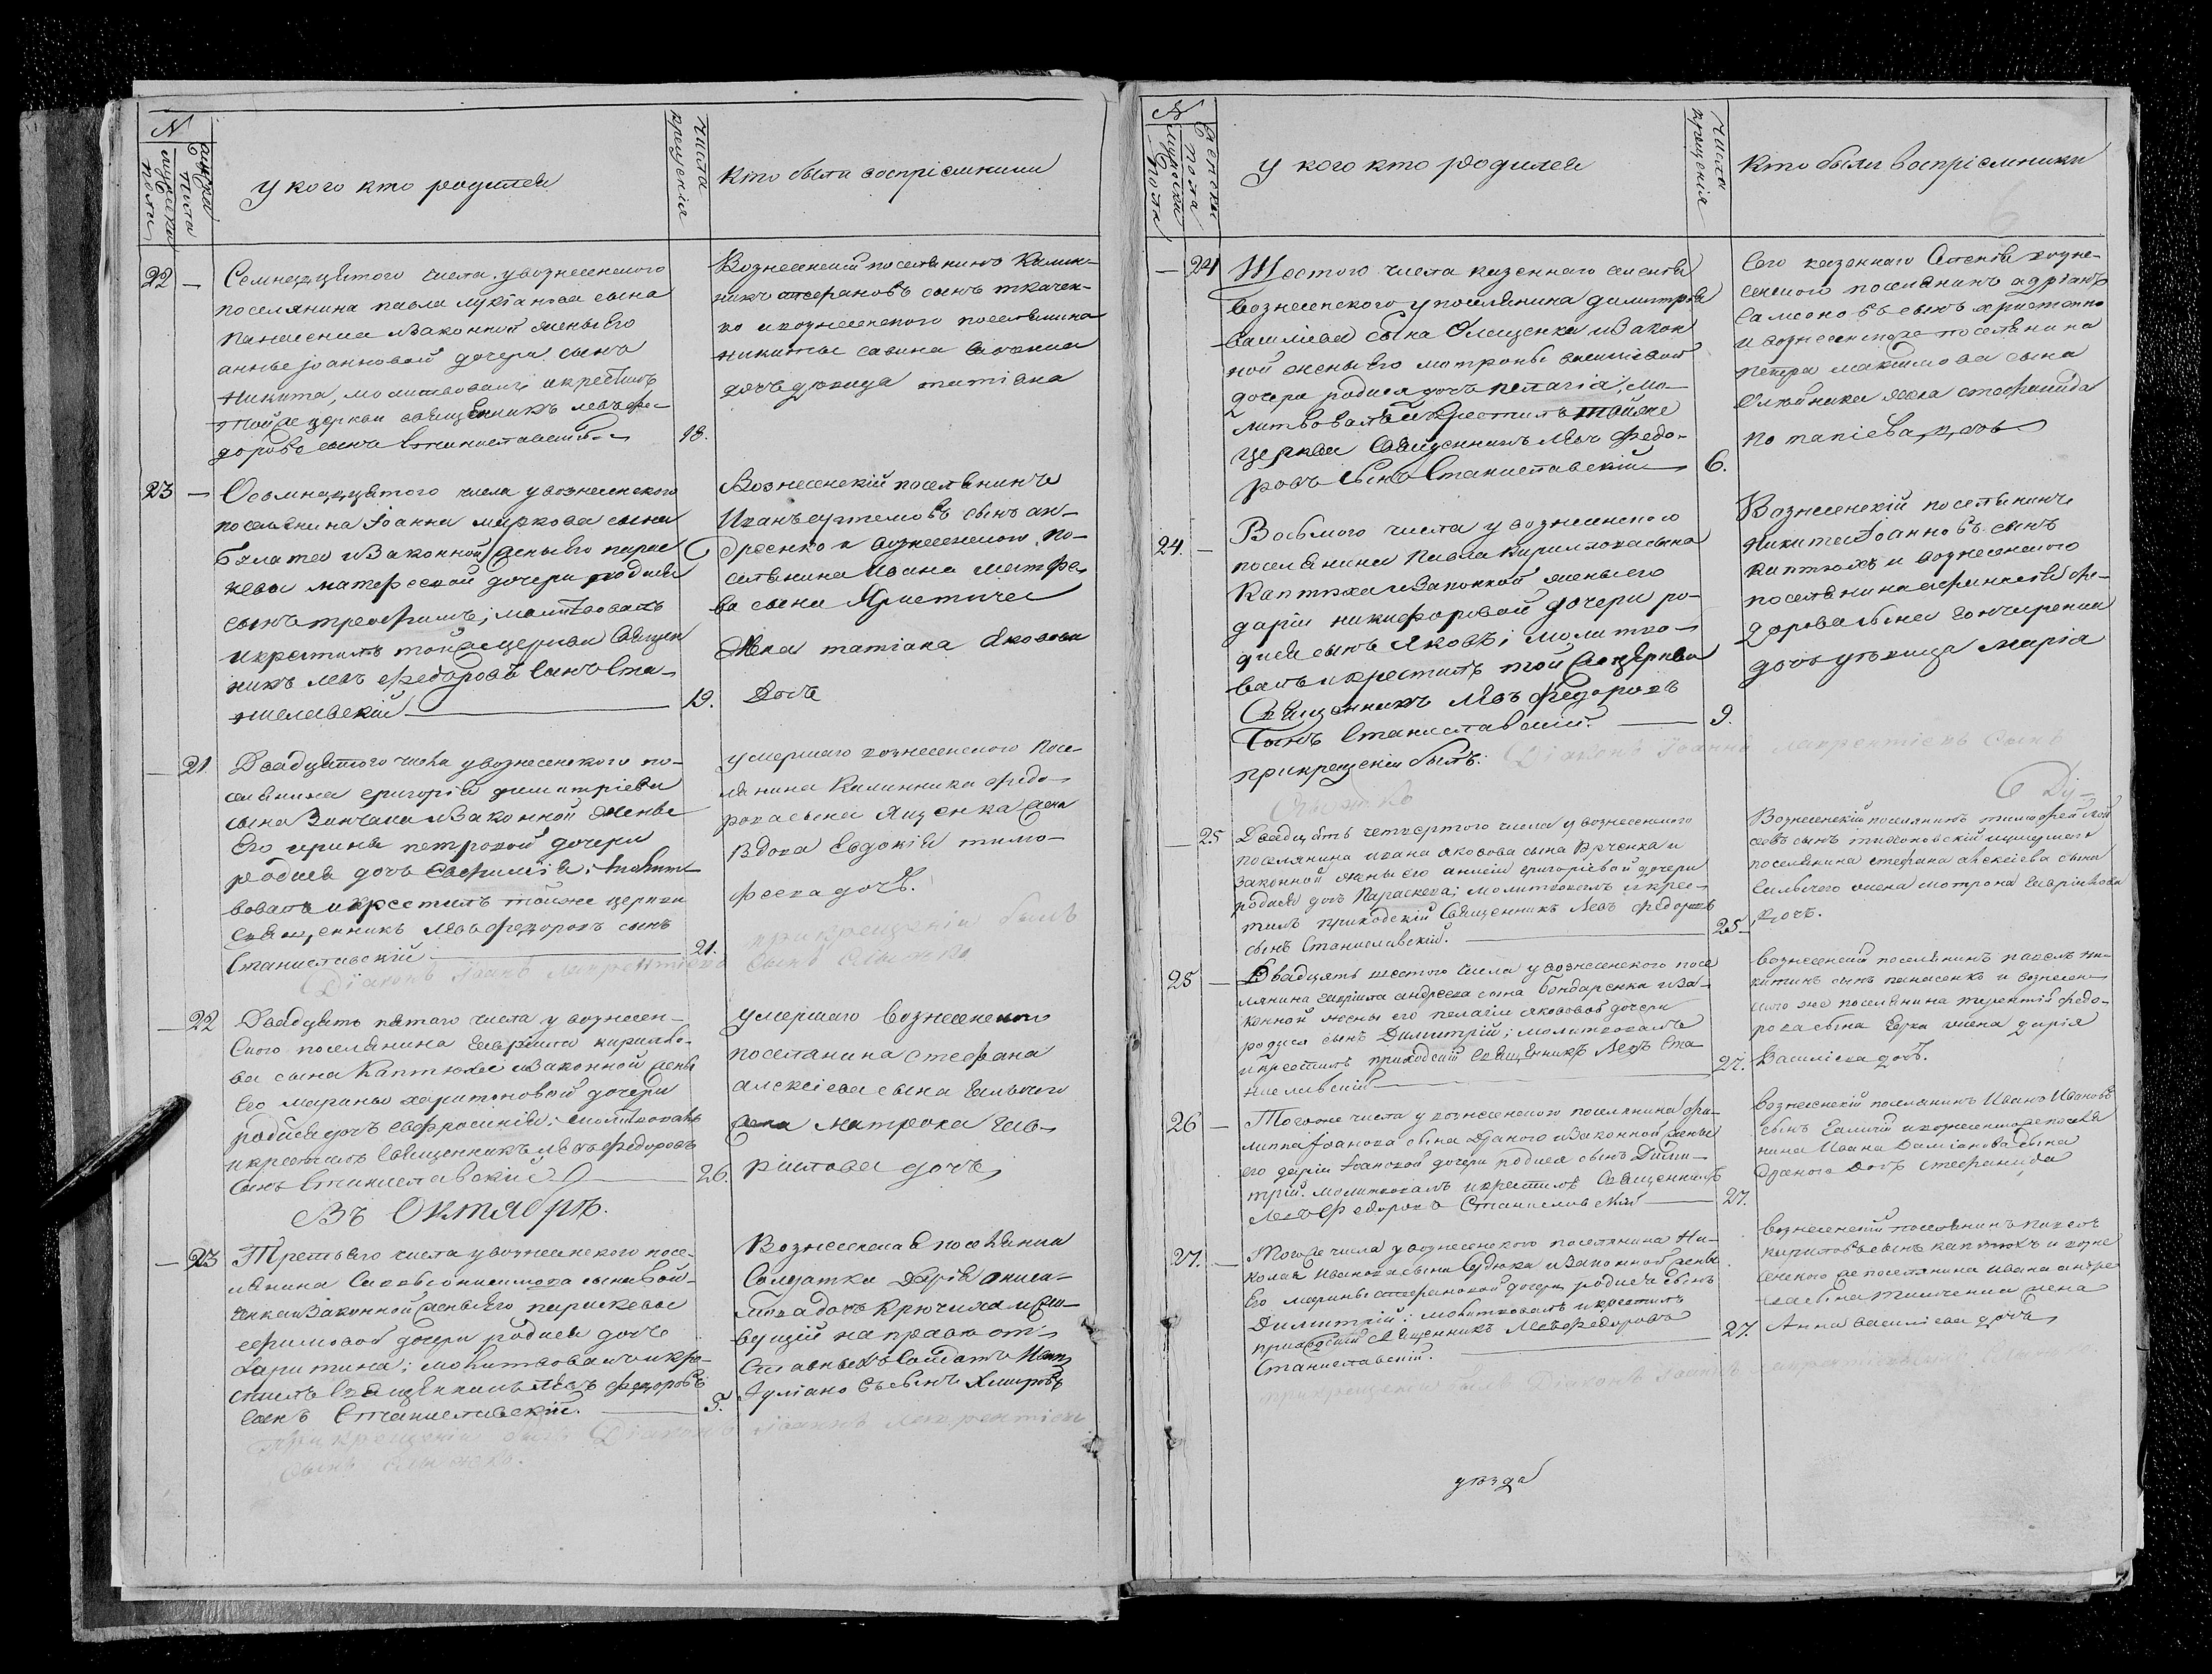 N
женска пола
мужеска пола
у кого кто родился
числа крещенія
кто были воспріемники
22 —
Семнадцятого числа у вознесенского
поселянина павла лукіанова сына
панасенка и законной жены его
анны іоанновой дочери сынъ
Никита, молитвовалъ и крестилъ
тойже церкви священникъ левъ фе-
доровъ сынъ Станиславскій
18.
Вознесенскій поселянинъ Калин-
никъ стефановъ сынъ ткачен-
ко и вознесенского поселянина
никиты савина
дочь дѣвица татіана
23 —
Осьмнадцятого числа у вознесенского
поселянина Іоанна маркова сына
и законной жены его парас
кевы матфеевой дочери родился
сынъ трофимъ; молитвовалъ
и крестилъ тойже церкви Священ
никъ левъ федоровъ сынъ Ста-
ниславскій
19.
Вознесенскій поселянинъ
Иванъ артемовъ сынъ ан-
дреенко и вознесенского по-
селянина Ивана матфе-
ва сына
жена татіана Яковова
дочь
— 21
Двадцятого числа у вознесенского по-
селянина григорія димитріева
сына Зинчака и законной жены
его ирины петровой дочери
родися дочь Евфимія; молит-
вовалъ и крестилъ тойже церкви
священникъ левъ федоровъ сынъ
Станиславскій
21.
умершаго вознесенского посе-
лянина Калинника федо-
рова сына Яценка жена
вдова Евдокія тимо-
феева дочь.
при крещеніи былъ
Діаконъ Іоаннъ Лаврентіевъ сынъ
— 22
Двадцять пятаго числа у вознесен-
ского поселянина Гавріила кирило-
ва сына Каптюха и законной жены
его марины харитоновой дочери
родися дочь евфросинія; молитвовалъ
и крестилъ священникъ левъ федоровъ
сынъ Станиславскій
26.
умершаго вознесенского
поселянина стефана
алексіева сына Галичого
жена матрона Гав-
ріилова дочь
Въ Октябрѣ.
— 23
Третьяго числа у вознесенского посе-
лянина Саввы онисимова сына Вой-
ченка и законной жены его параскевы
ефимовой дочери родися дочь
харитина; молитвовалъ и кре-
стилъ священникъ левъ федоровъ
сынъ Станиславскій.
3.
Вознесенская поселянка
Солдатка Дарія данилова дочь Крючиха и слу-
жущій на правах от-
ставныхъ Солдатъ Иванъ
Іуліановъ сынъ Хмаровъ
при крещеніи былъ Діаконъ Іоаннъ Лаврентіевъ
сынъ
N
женска пола
мужеска пола
у кого кто родился
числа крещенія
Кто были воспріемники
— 24
Шестого числа казеннаго селенія
вознесенского у поселянина димитрія
василіева сына Олещенка и закон
ной жены его матроны василіевой
дочери родися дочь пелагія; мо-
литвовалъ и крестилъ тойже
церкви Священникъ Левъ Федо-
ровъ сынъ Станиславскій
6.
Сего казеннаго Селенія возне-
сенского поселянинъ адріанъ
самсоновъ сынъ христенко
и вознесенского поселянина
петра максимова сына
Олѣйника жена стефанида
потапіева дочь
24. —
Восьмого числа у вознесенского
поселянина Павла Кирилова сына
Каптюха и законной жены его
даріи никифоровой дочери ро-
дился сынъ Яковъ; молитво-
валъ и крестилъ той же церкви
Священникъ Левъ Федоровъ
Сынъ Станиславскій.
9.
при крещеніи былъ: Діаконъ Іоаннъ Лаврентіевъ Сынъ
Вознесенскій поселянинъ
Никита Іоанновъ сынъ
каптюхъ и вознесенского
поселянина афанасія фе-
дорова сына Гончаренка
дочь дѣвица Марія
— 25
Двадцять четвертого числа у вознесенского
поселянина ивана яковова сына и
законной жены его анны григоріевой дочери
родися дочь Параскева; молитвовалъ и крес-
тилъ приходскій священникъ Левъ Федоровъ
сынъ Станиславскій.
25.
Вознесенскій поселянинъ тимофей
сынъ тихоновскій и умершого
поселянина стефана алексіева сына
Галичого жена матрона гавріилова
дочь.
25 —
Двадцять шестого числа у вознесенского посе
лянина гавріила андреева сына Бондаренка и за-
конной жены его пелагіи яковової дочери
родися сынъ Димитрій; молитвовалъ
и крестилъ приходскій священникъ Левъ Ста
ниславскій
27.
вознесенскій поселянинъ павелъ ни-
китинъ сынъ панасенко и вознесен-
ского же поселянина терентія федо-
рова сына жена дарія
Василіева дочь.
26 —
Того же числа у вознесенского поселянина фи-
липпа Іоанова сына Драного и законной жены
его даріи Іоановой дочери родися сынъ Дими-
трій. молитвовалъ и крестилъ Священникъ
Левъ Федоровъ Станиславскій
27.
Вознесенскій поселянинъ Иванъ Ивановъ
сынъ и вознесенского поселя
нина Ивана Даміанова сына
Драного дочь стефанида
27. —
Того же числа у вознесенского поселянина Ни-
колая Иванова сына и законной жены
его марины стефановой дочери родися сынъ
Димитрій: молитвовалъ и крестилъ
приходскій священникъ Левъ Федоровъ
Станиславскій.
27.
вознесенскій поселянинъ павелъ
кириловъ сынъ каптюхъ и возне
сенского же поселянина ивана андре
ева сына жена
Анна василіева дочь
при крещеніи былъ Діаконъ Іоаннъ
уѣзда